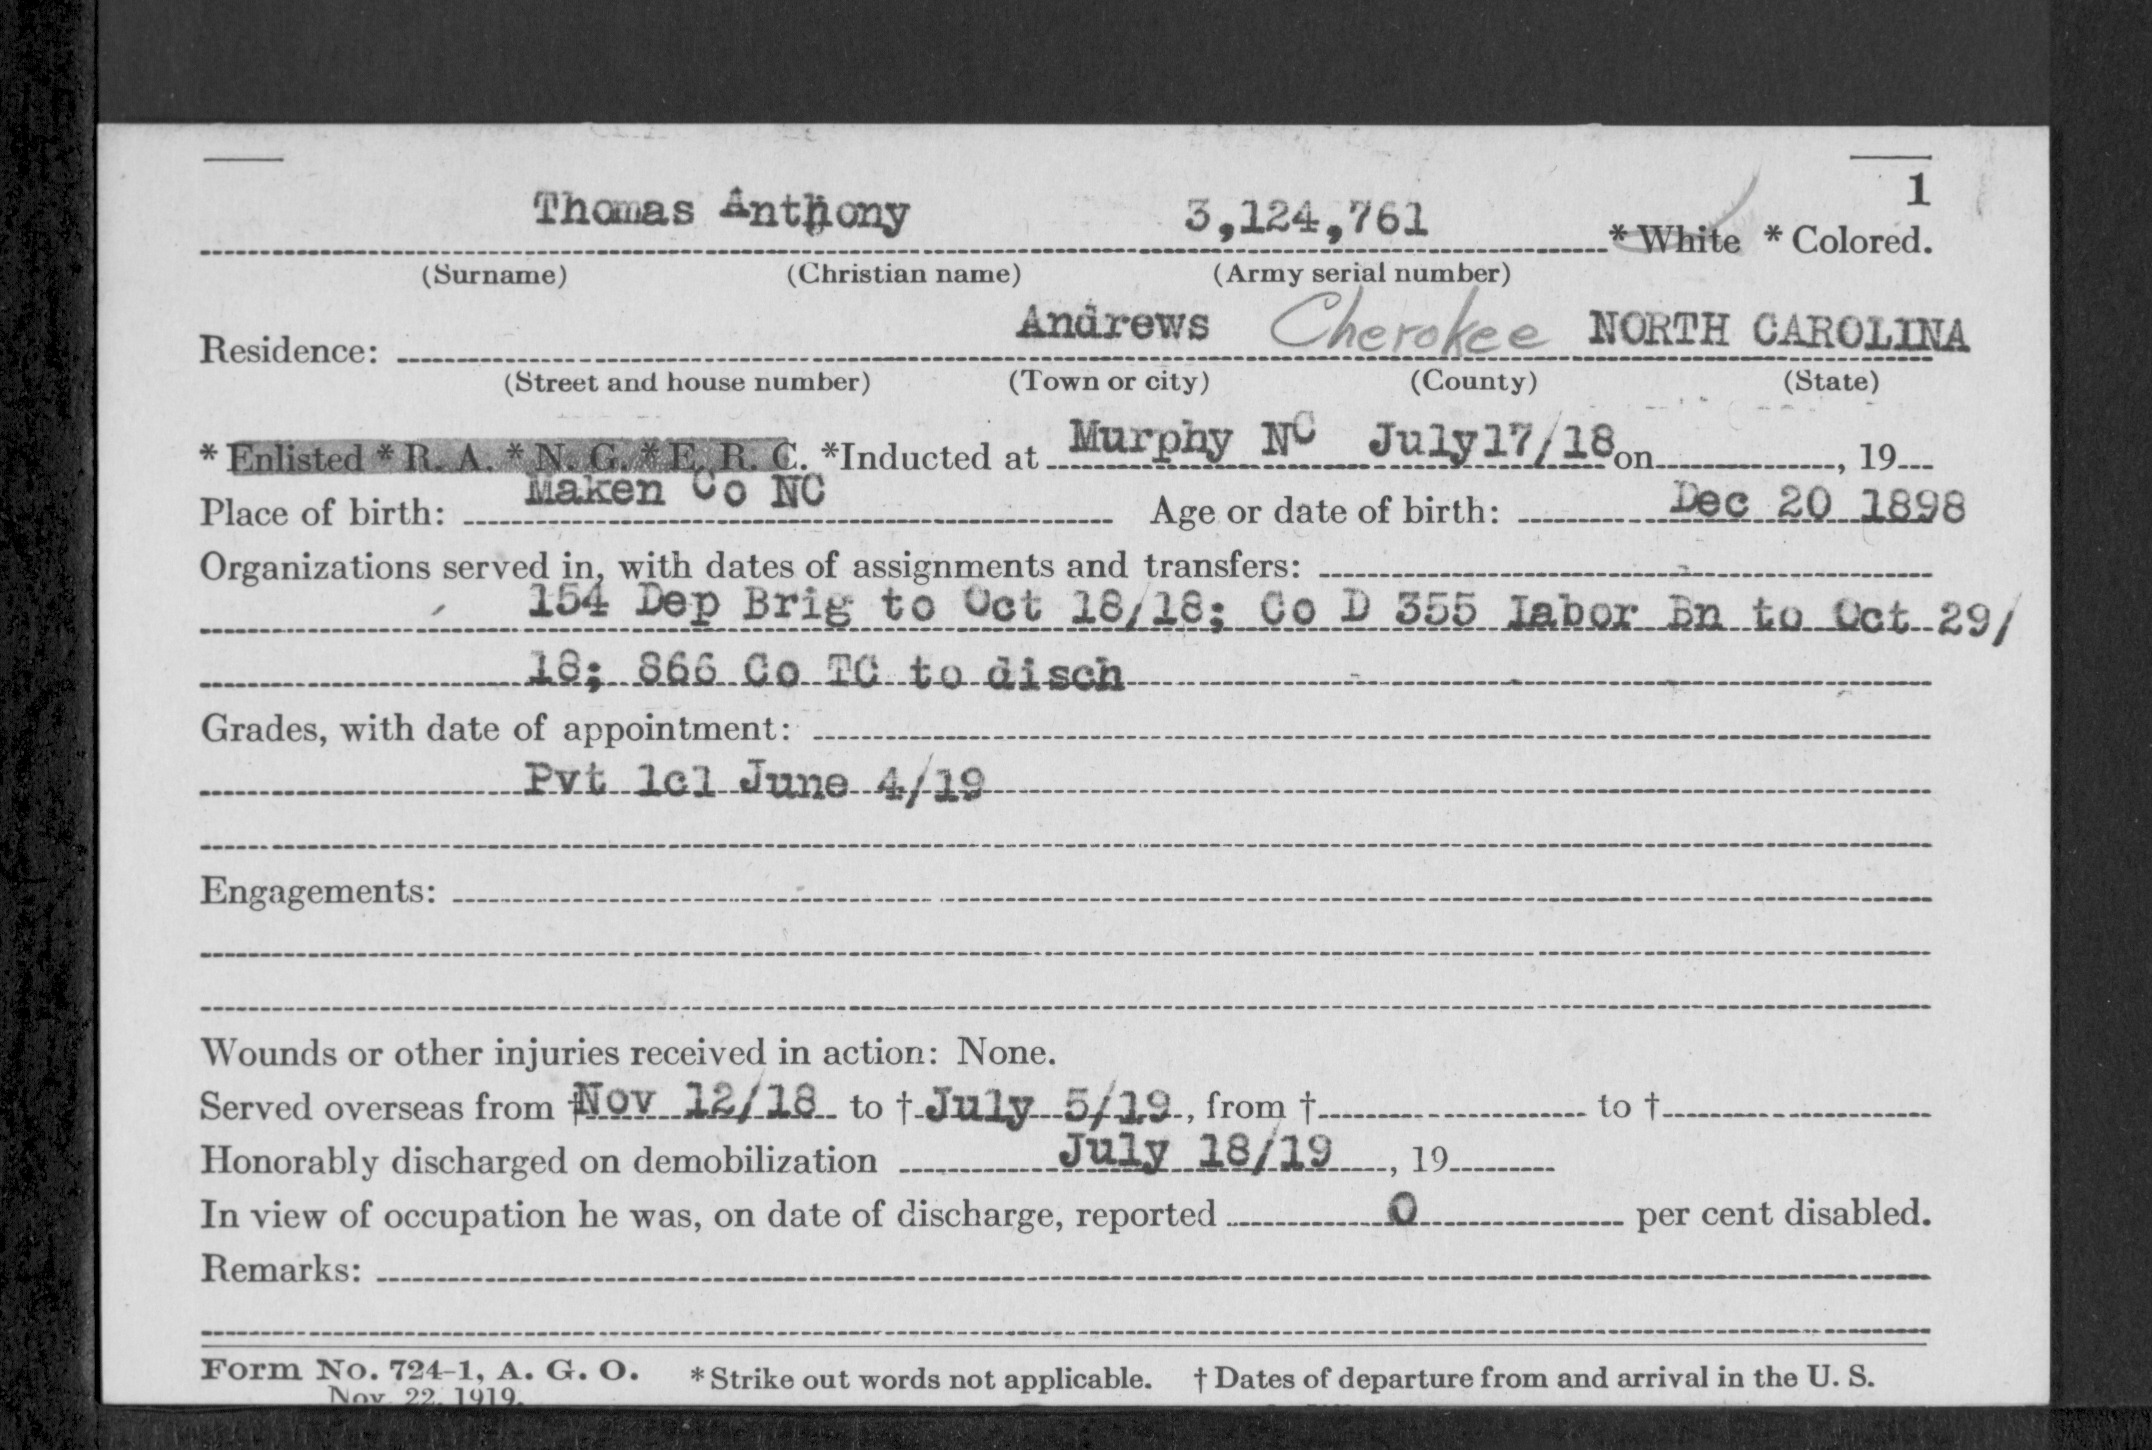 1
Thomas Anthony 3,124,761 * White * Colored.
(Surname) (Christian name) (Army serial number)
Residence: Andrews Cherokee NORTH CAROLINA
(Street and house number) (Town or city) (County) (State)
* Enlisted * R. A. * N. G. * E. R. C. *Inducted at Murphy NC July17/18 on , 19
Place of birth: Maken Co NC Age or date of birth: Dec 20 1898
Organizations served in, with dates of assignments and transfers:
154 Dep Brig to Oct 18/18; Co D 355 Labor Bn to Oct 29/
18; 866 Co TC to disch
Grades, with date of appointment:
Pvt 1cl June 4/19
Engagements:
Wounds or other injuries received in action: None.
Served overseas from † Nov 12/18 to † July 5/19, from † to †
Honorably discharged on demobilization July 18/19, 19
In view of occupation he was, on date of discharge, reported 0 per cent disabled.
Remarks:
Form No. 724-1, A. G. O. * Strike out words not applicable. † Dates of departure from and arrival in the U. S.
Nov. 22, 1919.